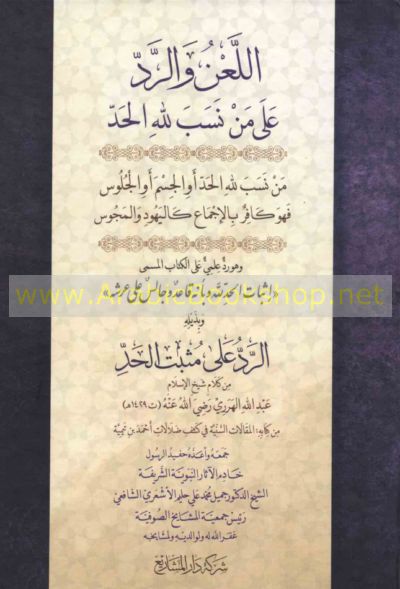 اللَّعْنُ وَالرَّدّ
عَلَى مَنْ نَسَبَ لِلهِ الحَدّ
مَنْ نَسَبَ لِلهِ الحَدَّ أَوِ الجِسْمَ أَوِ الجُلُوسَ
فَهُوَ كَافِرٌ بِالإِجْمَاعِ كَاليَهُودِ وَالمَجُوسِ
وهو ردٌّ علميٌّ على الكتاب المسمى
«إثبات الحدّ لله وبأنه قاعد وجالس على عرشه»
وبذيله
الرَّدُّ عَلَى مُثبِتِ الحَدِّ
مِن كَلَامِ شَيْخِ الإِسْلَامِ
عَبْدِ اللهِ الهَرَرِيِّ رَضِيَ اللهُ عَنْهُ (ت ١٤٢٩هـ)
مِن كِتَابِهِ: المَقَالَاتُ السُّنِّيَّةُ فِي كَشْفِ ضَلَالَاتِ أَحْمَدَ بنِ تَيْمِيَّةَ
جَمَعَهُ وَأَعَدَّهُ حَفِيدُ الرَّسُولِ
خَادِمُ الآثَارِ النَّبَوِيَّةِ الشَّرِيفَةِ
الشيخ الدكتور جميل محمد علي حليم الأشعري الشافعي
رَئِيسُ جَمْعِيَّةِ المَشَايِخِ الصُّوفِيَّةِ
غفر الله له ولوالديه ولمشايخه
شركة دار المشاريع
www.Arabicbookshop.net